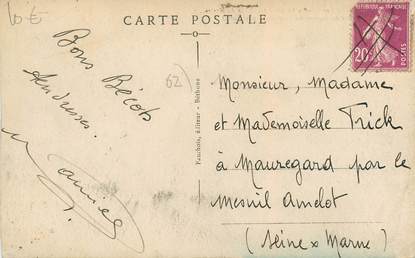 10 €
CARTE POSTALE
REPUBLIQUE FRANÇAISE
20c
POSTES
Bons Bécots
tendresses.
62
Fauchois, éditeur - Béthune
Monsieur, Madame
et Mademoiselle Trick
à Mauregard par le
Mesnil Amelot
(Seine & Marne)